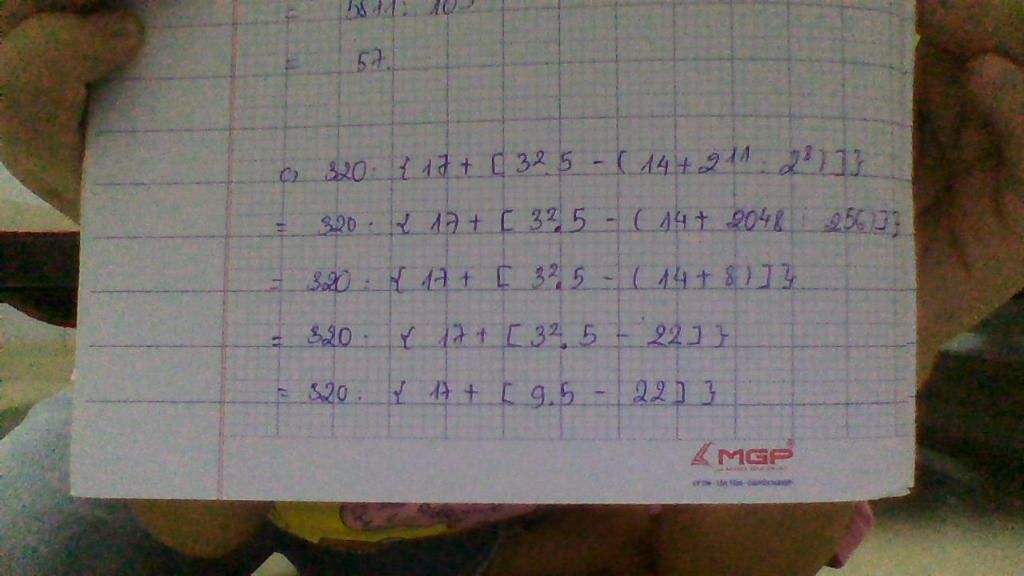 = 5871: 103
= 57.
c, 320: { 17 + [ 3².5 - ( 14 + 2¹¹ : 2⁸ ) ] }
= 320: { 17 + [ 3².5 - ( 14 + 2048 : 256 ) ] }
= 320: { 17 + [ 3².5 - ( 14 + 8 ) ] }
= 320: { 17 + [ 3².5 - 22 ] }
= 320: { 17 + [ 9.5 - 22 ] }
MGP